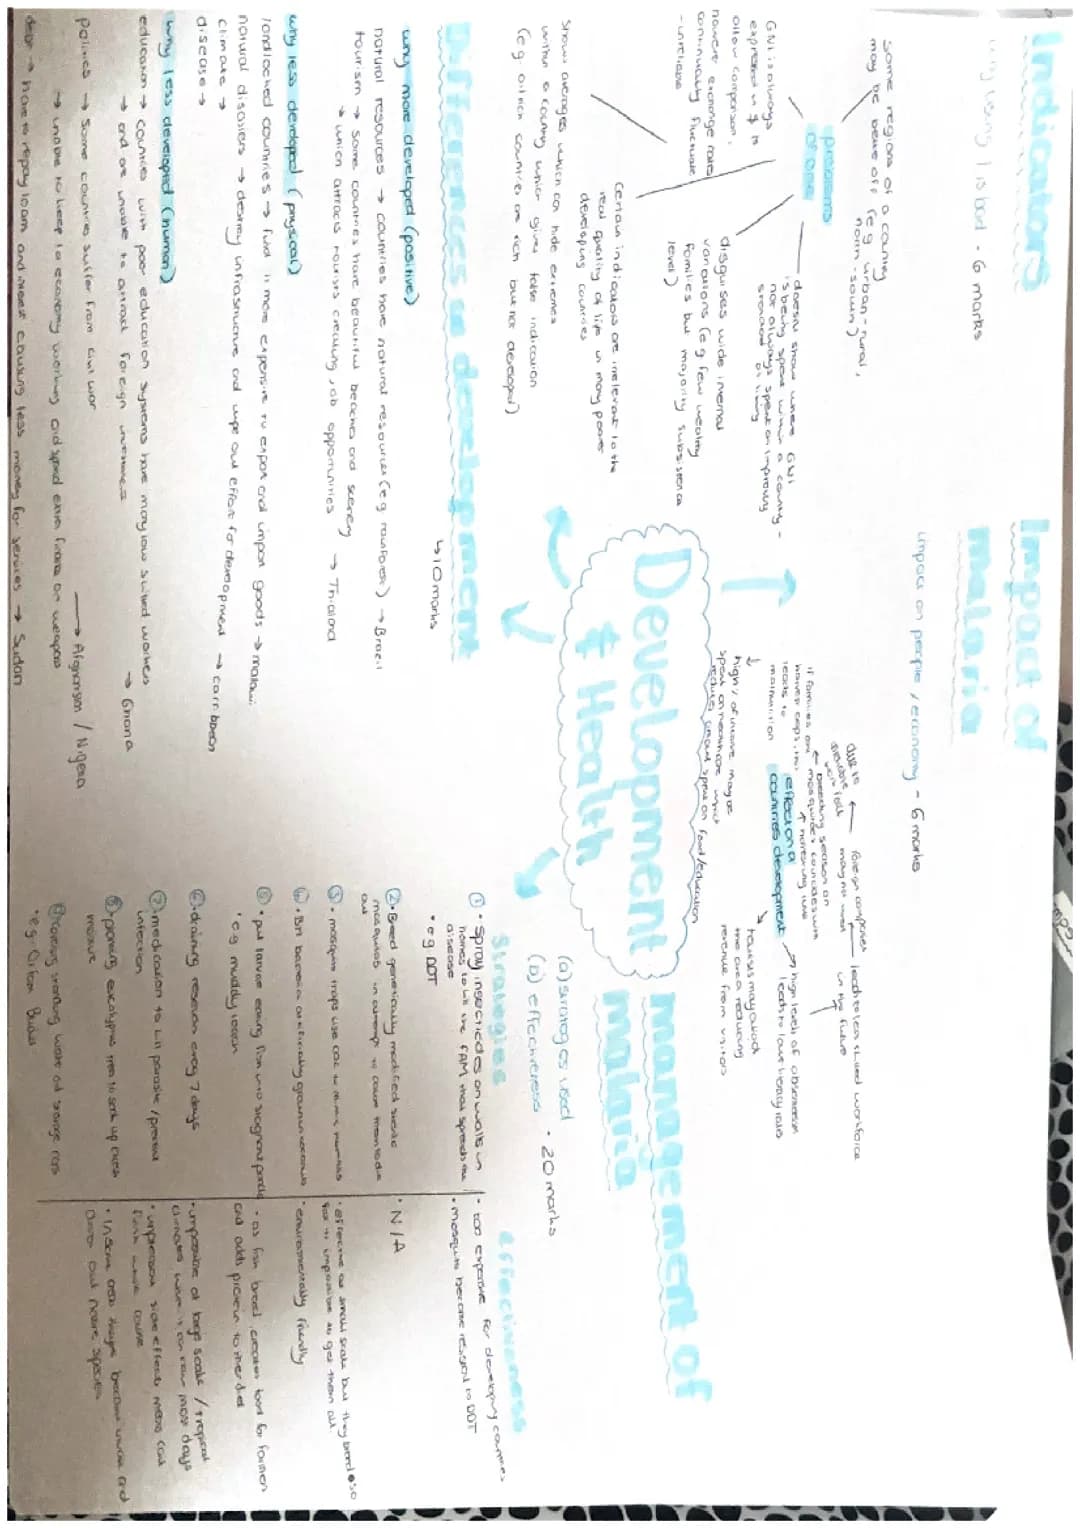 Indicators
why using 1 is bad - 6 marks
Some regions of a country
may be better off (e.g. urban-rural,
north-south)
problems
of one
GNI is always
expressed in $ to
allow comparison,
however exchange rates
continually fluctuate
- unreliable
doesn't show where GNI
is being spent within a country -
not always spent on improving
standard of living
disguises wide internal
variations (e.g. few wealthy
families but majority subsistence
level)
Certain indicators are irrelevant to the
real quality of life in many poorer
developing countries
Shows averages which can hide extremes
within a country which gives false indication
(e.g. oil rich countries are rich but not developed)
Differences in development
↳ 10 marks
why more developed (positive)
natural resources → countries have natural resources (e.g. rainforest) → Brazil
tourism → some countries have beautiful beaches and scenery
→ which attracts tourists creating job opportunities → Thailand
why less developed (physical)
landlocked countries → find it more expensive to export and import goods → malawi
natural disasters → destroy infrastructure and wipe out effort for development → carribbean
climate →
disease →
why less developed (human)
education → countries with poor education systems have many low skilled workers
→ and are unable to attract foreign investment → Ghana
politics → some countries suffer from civil war
→ unable to keep economy working and spend extra finance on weapons
→ Afghanistan / Nigeria
debt → have to repay loan and interest causing less money for services → Sudan
Development
& Health
Impact of
malaria
impact on people / economy - 6 marks
effect on a
countries development
due to
foreign companies
may not invest
in the future
leads to less skilled workforce
breeding season on
mosquitoes coincides with
harvesting time
if families are
harvest crops, this
leads to
malnutrition
high % of income may be
spent on healthcare which
reduces amount spent on food/education
→ high levels of absenteeism
leads to lower literacy rates
tourists may avoid
the area reducing
revenue from visitors
management of
malaria
(a) strategies used
(b) effectiveness
- 20 marks
Strategies
① • spray insecticides on walls in
homes to kill the FAM that spreads the
disease
• e.g. DDT
② • Breed genetically modified sterile
mosquitos in attempt to cause them to die
out
③ • mosquito traps use CO2 to mimic humans
④ • Bti bacteria artificially grown in coconuts
⑤ • put larvae eating fish into stagnant ponds
• e.g. muddy loach
⑥ • draining reservoir every 7 days
⑦ • medication to kill parasite / prevent
infection
⑧ • planting eucalyptus trees to soak up excess
moisture
Effectiveness
• too expensive for developing countries
• mosquito became resistant to DDT
• N/A
• effective at small scale but they breed so
fast its impossible to get them all.
• environmentally friendly
• as fish breed, creates food for farmers
and adds protein to their diet
• impossible at large scale / tropical
climates where it can rain most days
• unpleasant side effects means can't
finish whole course
• In some areas they've become invasive and
driven out native species